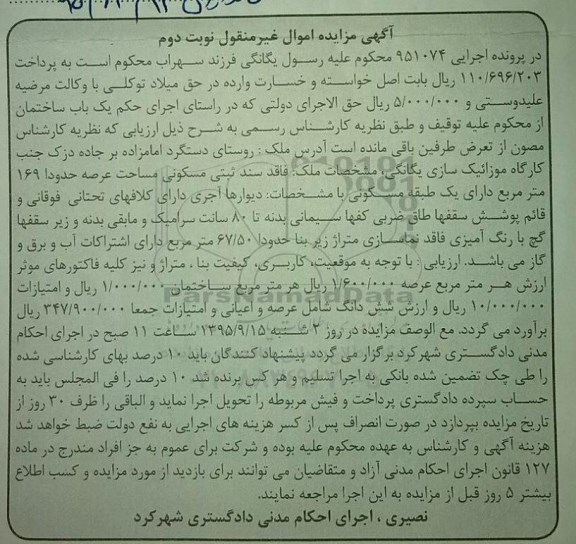 آگهی مزایده اموال غیرمنقول نوبت دوم
در پرونده اجرایی ۹۵۱۰۷۴ محکوم علیه رسول یگانگی فرزند سهراب محکوم است به پرداخت
۱۱۰/۶۹۶/۲۰۳ ریال بابت اصل خواسته و خسارت وارده در حق میلاد توکلی با وکالت مرضیه
علیدوستی و ۵/۰۰۰/۰۰۰ ریال حق الاجرای دولتی که در راستای اجرای حکم یک باب ساختمان
از محکوم علیه توقیف و طبق نظریه کارشناس رسمی به شرح ذیل ارزیابی که نظریه کارشناس
مصون از تعرض طرفین باقی مانده است آدرس ملک : روستای دستگرد امامزاده بر جاده دزک جنب
کارگاه موزائیک سازی یگانگی، مشخصات ملک: فاقد سند ثبتی مسکونی مساحت عرصه حدودا ۱۶۹
متر مربع دارای یک طبقه مسکونی با مشخصات: دیوارها آجری دارای کلافهای تحتانی فوقانی و
قائم پوشش سقفها طاق ضربی کفها سیمانی بدنه تا ۸۰ سانت سرامیک و مابقی بدنه و زیر سقفها
گچ با رنگ آمیزی فاقد نماسازی متراژ زیر بنا حدودا ۶۷/۵۰ متر مربع دارای اشتراکات آب و برق و
گاز می باشد. ارزیابی : با توجه به موقعیت، کاربری، کیفیت بنا ، متراژ و نیز کلیه فاکتورهای موثر
ارزش هر متر مربع عرصه ۱/۶۰۰/۰۰۰ ریال هر متر مربع ساختمان ۱/۰۰۰/۰۰۰ ریال و امتیازات
۱۰/۰۰۰/۰۰۰ ریال و ارزش شش دانگ شامل عرصه و اعیانی و امتیازات جمعا ۳۴۷/۹۰۰/۰۰۰ ریال
برآورد می گردد. مع الوصف مزایده در روز ۲ شنبه ۱۳۹۵/۹/۱۵ ساعت ۱۱ صبح در اجرای احکام
مدنی دادگستری شهرکرد برگزار می گردد پیشنهاد کنندگان باید ۱۰ درصد بهای کارشناسی شده
را طی چک تضمین شده بانکی به اجرا تسلیم و هر کس برنده شد ۱۰ درصد را فی المجلس باید به
حساب سپرده دادگستری پرداخت و فیش مربوطه را تحویل اجرا نماید و الباقی را ظرف ۳۰ روز از
تاریخ مزایده بپردازد در صورت انصراف پس از کسر هزینه های اجرایی به نفع دولت ضبط خواهد شد
هزینه آگهی و کارشناس به عهده محکوم علیه بوده و شرکت برای عموم به جز افراد مندرج در ماده
۱۲۷ قانون اجرای احکام مدنی آزاد و متقاضیان می توانند برای بازدید از مورد مزایده و کسب اطلاع
بیشتر ۵ روز قبل از مزایده به این اجرا مراجعه نمایند.
نصیری ، اجرای احکام مدنی دادگستری شهرکرد
ParsNamadData